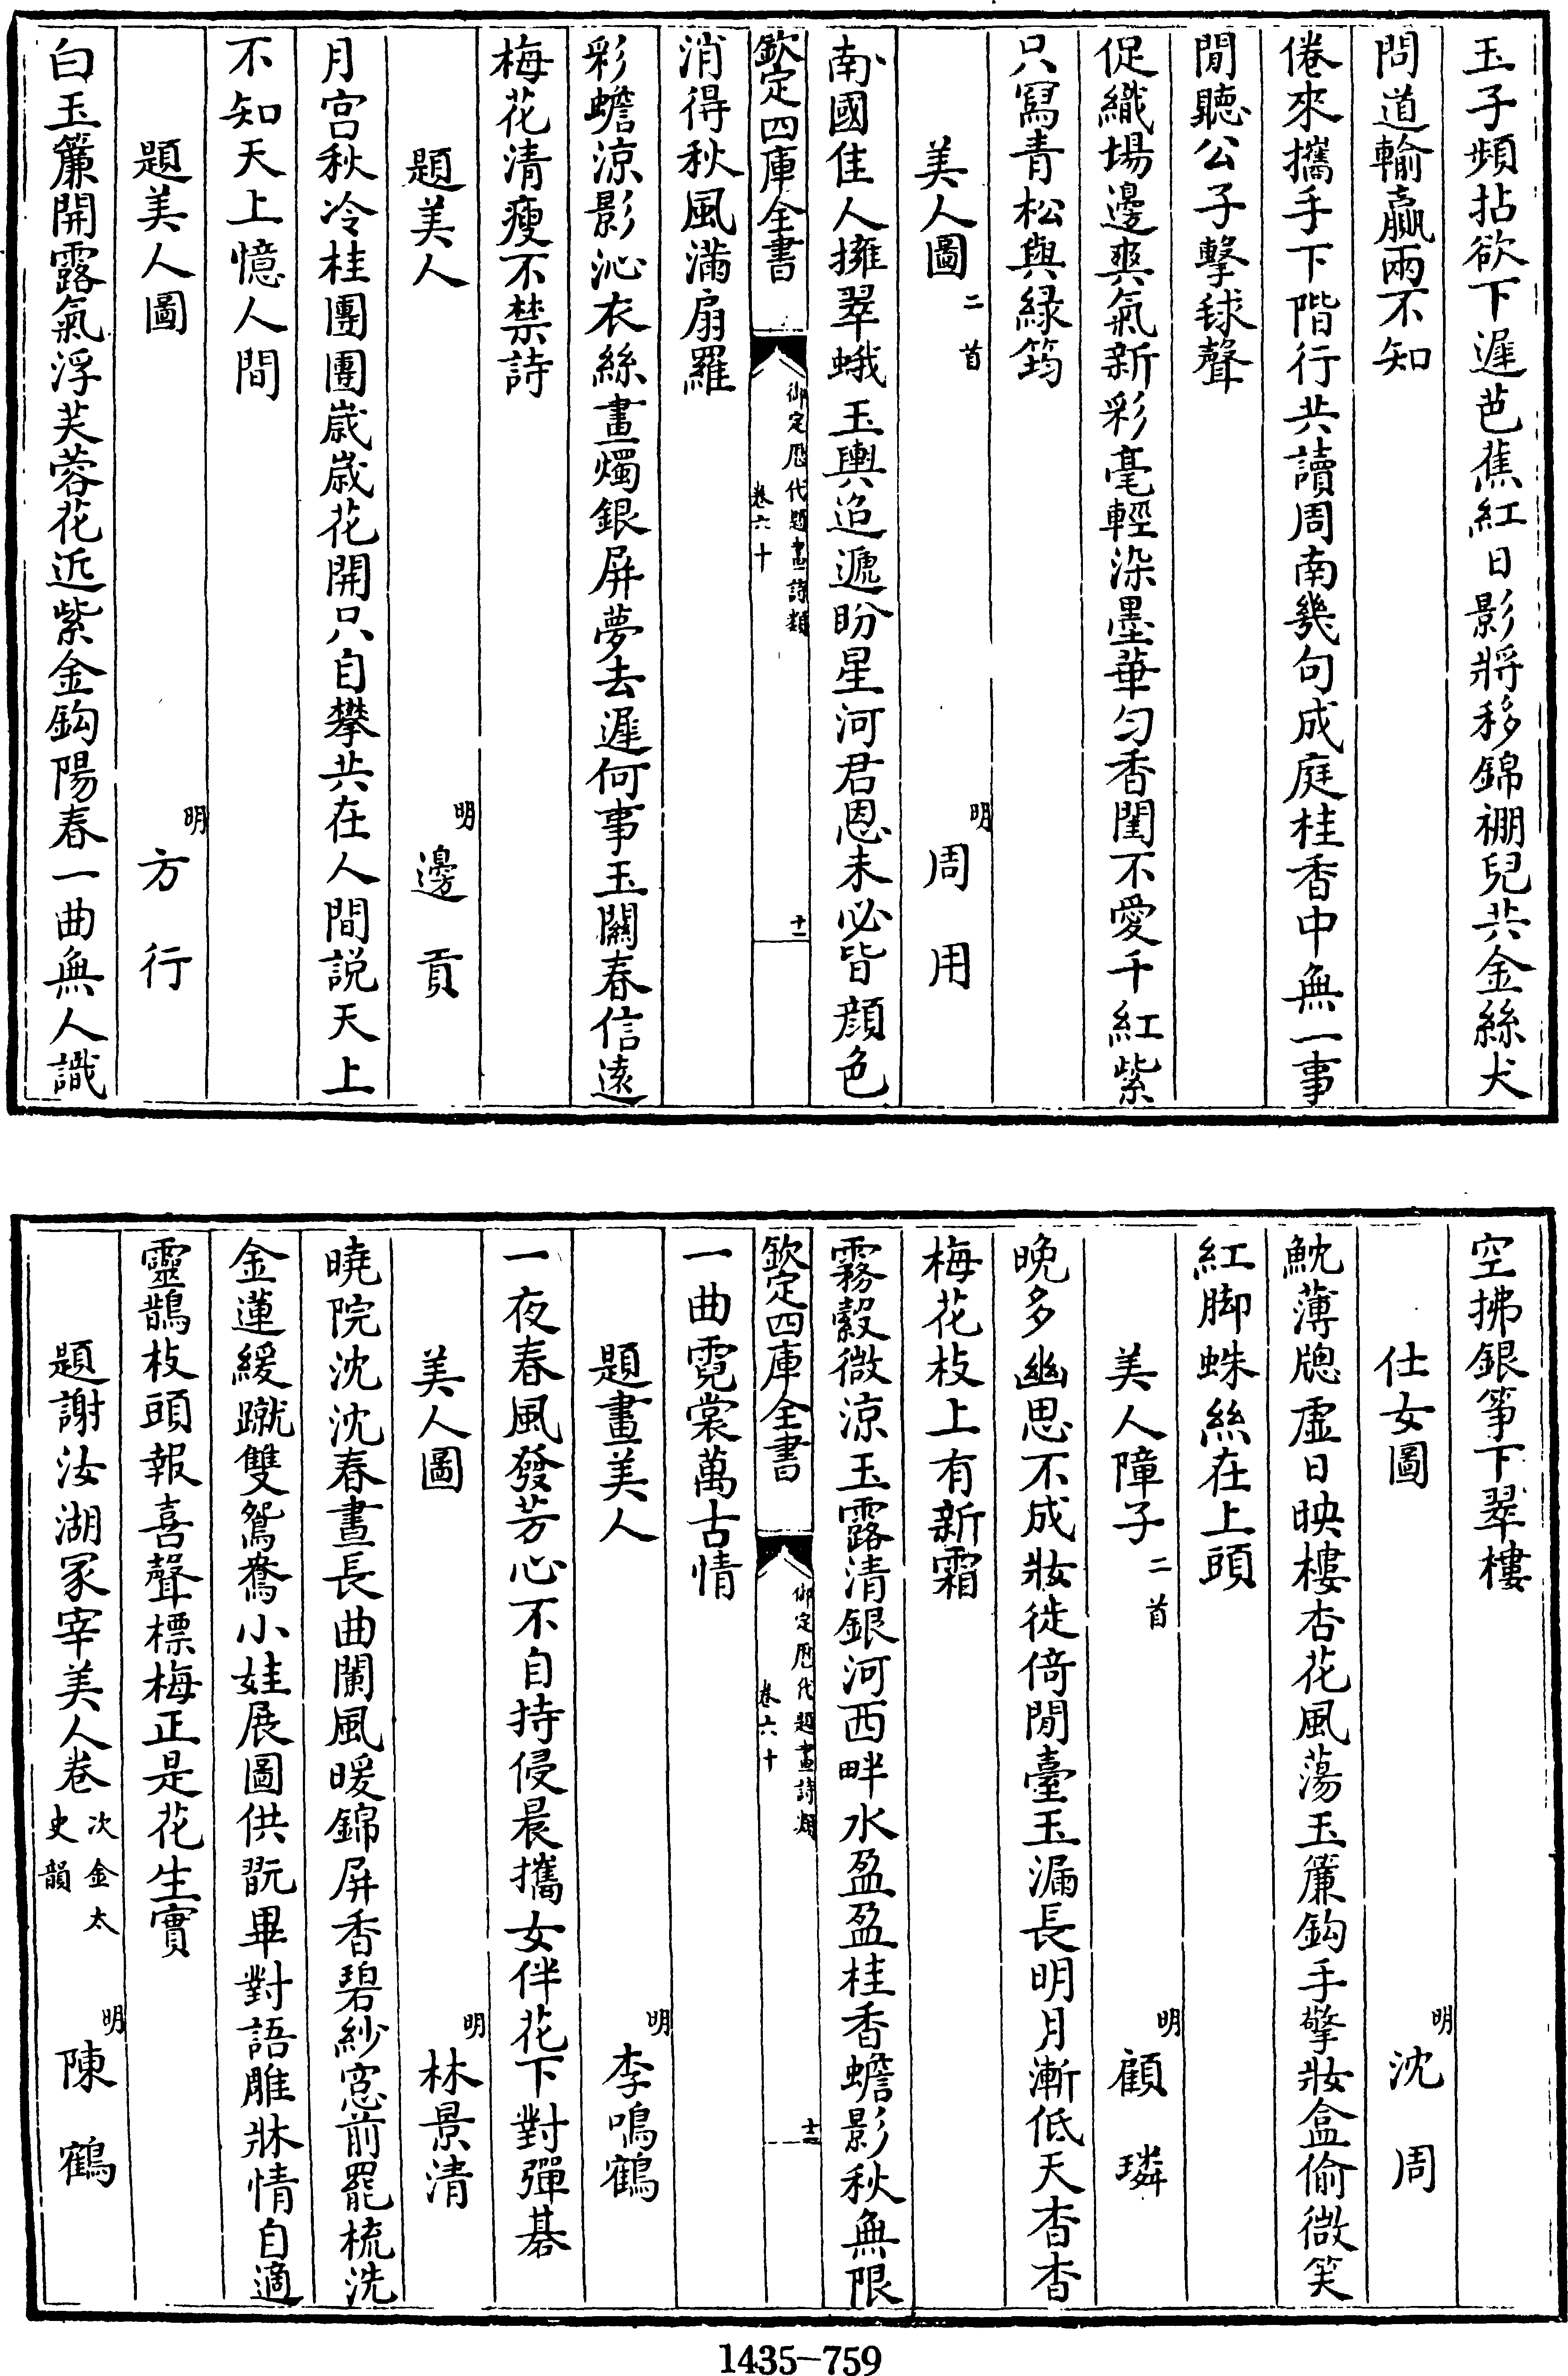 玉子頻拈欲下遲芭蕉紅日影將移錦襉兒共金絲犬
問道輸贏兩不知
倦來攜手下階行共讀周南幾句成庭桂香中無一事
閒聽公子擊毬聲
促織場邊爽氣新彩毫輕染墨華勻香閨不愛千紅紫
只寫青松與緑筠
美人圖二首 明 周用
南國佳人擁翠蛾玉輿迢遞盼星河君恩未必皆顔色
欽定四庫全書 御定歴代題畫詩類 卷六十 十一
消得秋風滿扇羅
彩蟾涼影沁衣絲畫燭銀屏夢去遲何事玉關春信遠
梅花清瘦不禁詩
題美人 明 邊貢
月宫秋冷桂團團歳歳花開只自攀共在人間説天上
不知天上憶人間
題美人圖 明 方行
白玉簾開露氣浮芙蓉花近紫金鈎陽春一曲無人識
空拂銀箏下翠樓
仕女圖 明 沈周
魫薄牕虚日映樓杏花風蕩玉簾鈎手擎妝盒偷微笑
紅脚蛛絲在上頭
美人障子二首 明 顧璘
晩多幽思不成妝徙倚閒臺玉漏長明月漸低天杳杳
梅花枝上有新霜
霧縠微涼玉露清銀河西畔水盈盈桂香蟾影秋無限
欽定四庫全書 御定歴代題畫詩類 卷六十 十二
一曲霓裳萬古情
題畫美人 明 李鳴鶴
一夜春風發芳心不自持侵晨攜女伴花下對彈棊
美人圖 明 林景清
曉院沈沈春晝長曲闌風暖錦屏香碧紗窓前罷梳洗
金蓮緩蹴雙鴛鴦小娃展圖供翫畢對語雕牀情自適
靈鵲枝頭報喜聲標梅正是花生實
題謝汝湖冢宰美人卷次金太史韻 明 陳鶴
1435-759